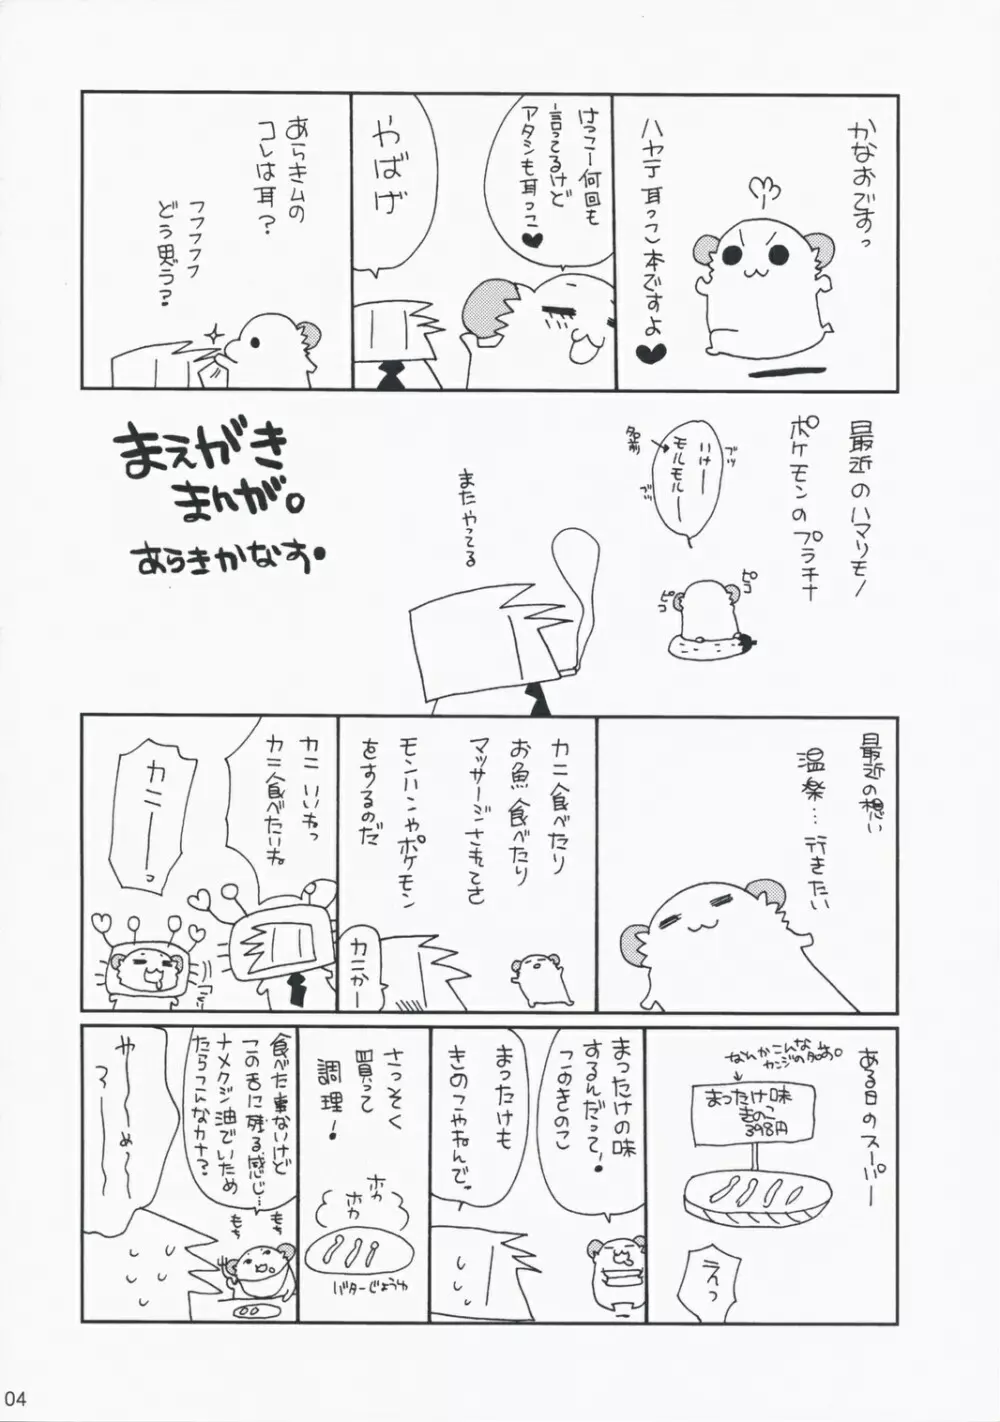 かなおですっ
ハヤテ耳っこ本ですよ♥
けっこー何回も
言ってるけど
アタシも耳っこ♥
やばげ
あらきムの
コレは耳?
フフフフフ
どう思う?
最近のハマリモノ
ポケモンのプラチナ
ブッ
いけー
モルモルー
ブッ
名前
ピコ
ピコ
またやってる
まえがき
まんが。
あらきかなお。
最近の想い
温泉…行きたい
カニ食べたり
お魚食べたり
マッサージされてさ
モンハンやポケモン
をするのだ
カニかー
カニいいねっ
カニ食べたいね。
カニーーっ
ある日のスーパー
なんかこんな
カンジの名前。
まったけ味
きのこ
398円
えっ
まったけの味
するんだって!
このきのこ
まったけも
きのこやねんで。
さっそく
買って
調理!
ホカ
ホカ
バターじょうゆ
食べた事ないけど
この舌に残る感じ…
ナメクジ油でいため
たらこんなカナ?
もち
もち
や〜〜めっ〜〜